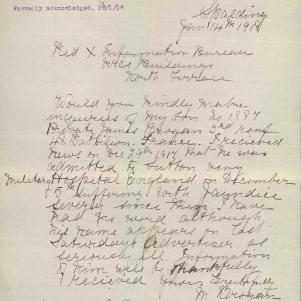 Formally acknowledged, 16/1/18
Spalding
Jan 14th 1918
Red X Information Bureau
Buildings
North Terrace
Would you kindly make
inquiries of my Son No 1887
Private James Brogan 3rd renf
48 Battlion. France. I recieved
news on Dec 29th 1917 that he was
admitted to Sutton Veny
Military Hospital England on December
suffering with Jaundice
Severe since then I have
had no word although
his name appears on last
Saturdays Advertiser as
seriously ill Information
of him will be thankfully
recieved yours Gratefully
M Brogan